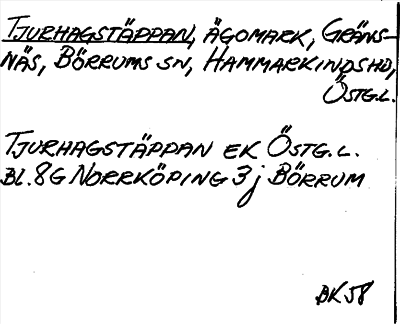 TJURHAGSTÄPPAN, ÄGOMARK, GRÄNS-
NÄS, BÖRRUMS SN, HAMMARKINDS HD,
ÖSTG.L.
TJURHAGSTÄPPAN EK ÖSTG.L.
BL.8G NORRKÖPING 3j BÖRRUM
BK 58